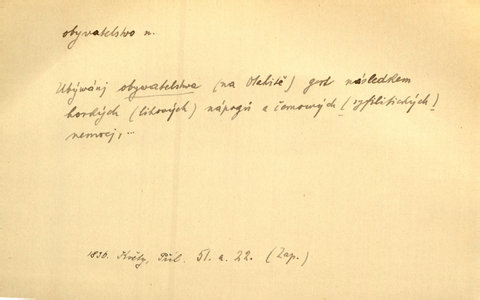 obyvatelstvo n.
Ubývánj obywatelstwa (na Otahitě) gest následkem
horkých (lihových) nápogů a čemerných (syfilitických)
nemocj, ..
1836. Květy, Příl. 51. a. 22. (Zap.)